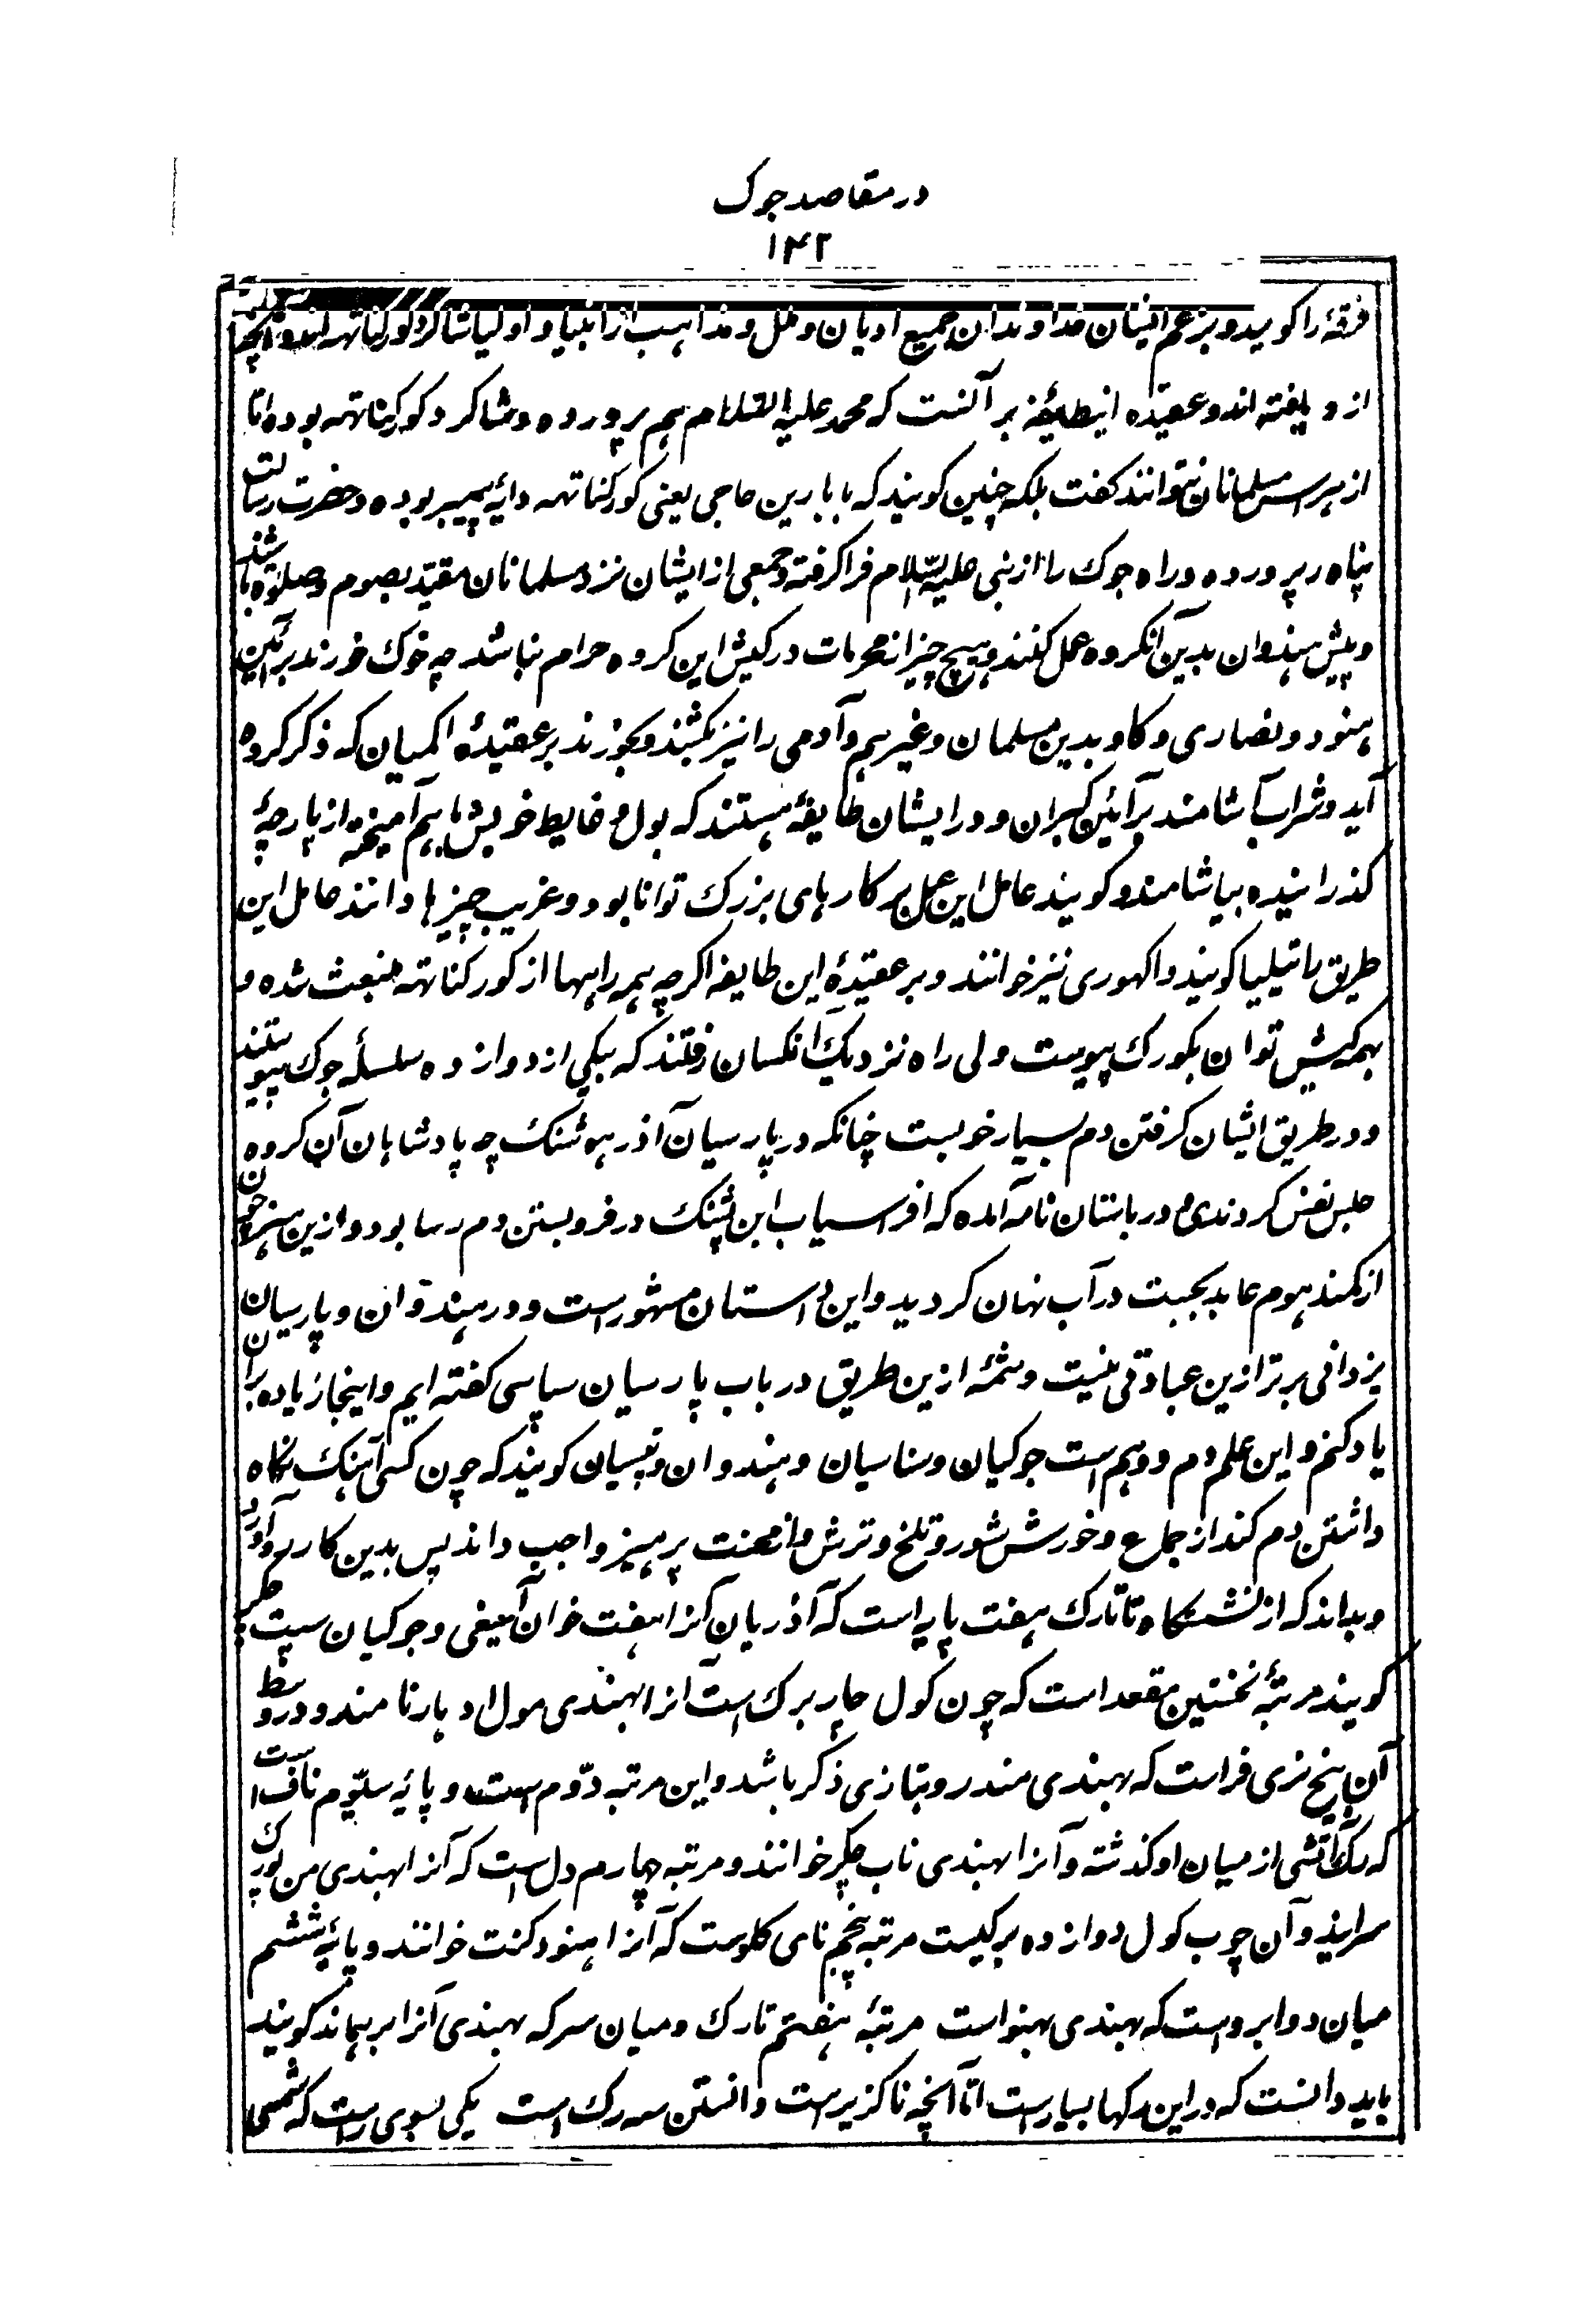 در مقاصد جوک
۱۴۲
فرقهٔ را کویند و بزعم ایشان خداوندان جمیع ادیان و ملل و مذاهب از انبیا و اولیا شاکرد کورکناتهه اند و آنچه
از و یافته اند و عقیده اینطایفه بر آنست که محمد علیه السلام هم پرورده و شاکرد کورکناتهه بوده اما
از هراس مسلمانان نتوانند کفت بلکه چنین کویند که بابا رین حاجی یعنی کورکناتهه دایهٔ پیمبر بوده و حضرت رسالت
پناه را پرورده و راه جوک را از نبی علیه السلام فرا کرفته و جمعی از ایشان نزد مسلمانان مقید بصوم و صلوة باشند
و پیش هندوان بدین آنکروه عمل کنند و هیچ چیز از محرمات در کیش این کروه حرام نباشد چه خوک خورند بر آئین
هنود و نصاری و کاو بدین مسلمان و غیرهم و آدمی را نیز بکشند و بخورند بر عقیدهٔ اکمیان که ذکر کرده
آید و شراب آشامند بر آئین کبران و در ایشان طایفهٔ هستند که بول و غایط خویش با هم آمیخته از پارچهٔ
کذرانیده بیاشامند و کویند عامل این عمل بر کارهای بزرک توانا بود و غریب چیزها داند عامل این
طریق را تیلیا کویند و اکهوری نیز خوانند و بر عقیدهٔ این طایفه اکرچه همه راهها از کورکناتهه منبعث شده و
بهمه کیش توان بکورک پیوست ولی راه نزدیک آنکسان رفتند که بیکی از دوازده سلسلهٔ جوک پیوستند
و در طریق ایشان کرفتن دم بسیار خوبست چنانکه در پارسیان آذر هوشنک چه پادشاهان آن کروه
حبس نفس کردندی و در باستان نامه آمده که افراسیاب ابن پشنک در فرو بستن دم رسا بود و ازین هنر چون
از کمند هوم عابد بجست در آب نهان کردید و این داستان مشهور است و در هندوان و پارسیان
یزدانی برتر ازین عبادتی نیست و شمهٔ ازین طریق در باب پارسیان سپاسی کفته ایم و اینجا زیاده بران
یاد کنم و این علم دم و وهم است جوکیان و سناسیان و هندوان و تپسیان کویند که چون کسی آهنک نکاه
داشتن دم کند از جماع و خورش شور و تلخ و ترش و از محنت پرهیز واجب داند پس بدین کار رو آورد
و بداند که از نشستکاه تا تارک هفت پایه است که آذریان آنرا هفت خوان آمیغی و جوکیان سپت چکر
کویند مرتبهٔ نخستین مقعد است که چون کول چار برک است آنرا بهندی مول ادهار نامند و در وسط
آن بیخ نری فراست که بهندی مندر و بتازی ذکر باشد و این مرتبه دوم است و پایهٔ سیوم ناف است
که رک آتشی از میان او کذشته و آنرا بهندی ناب چکر خوانند و مرتبه چهارم دل است که آنرا بهندی من پورک
سرایند و آن چوب کول دوازده برکیست مرتبه پنجم نای کلوست که آنرا هنود کنت خوانند و پایهٔ ششم
میان دو ابروست که بهندی بهنواست مرتبهٔ هفتم تارک و میان سر که بهندی آنرا برهماند کویند
باید دانست که در این رکها بسیار است اما آنچه ناکزیر است دانستن سه رک است یکی بسوی راست که شمسی